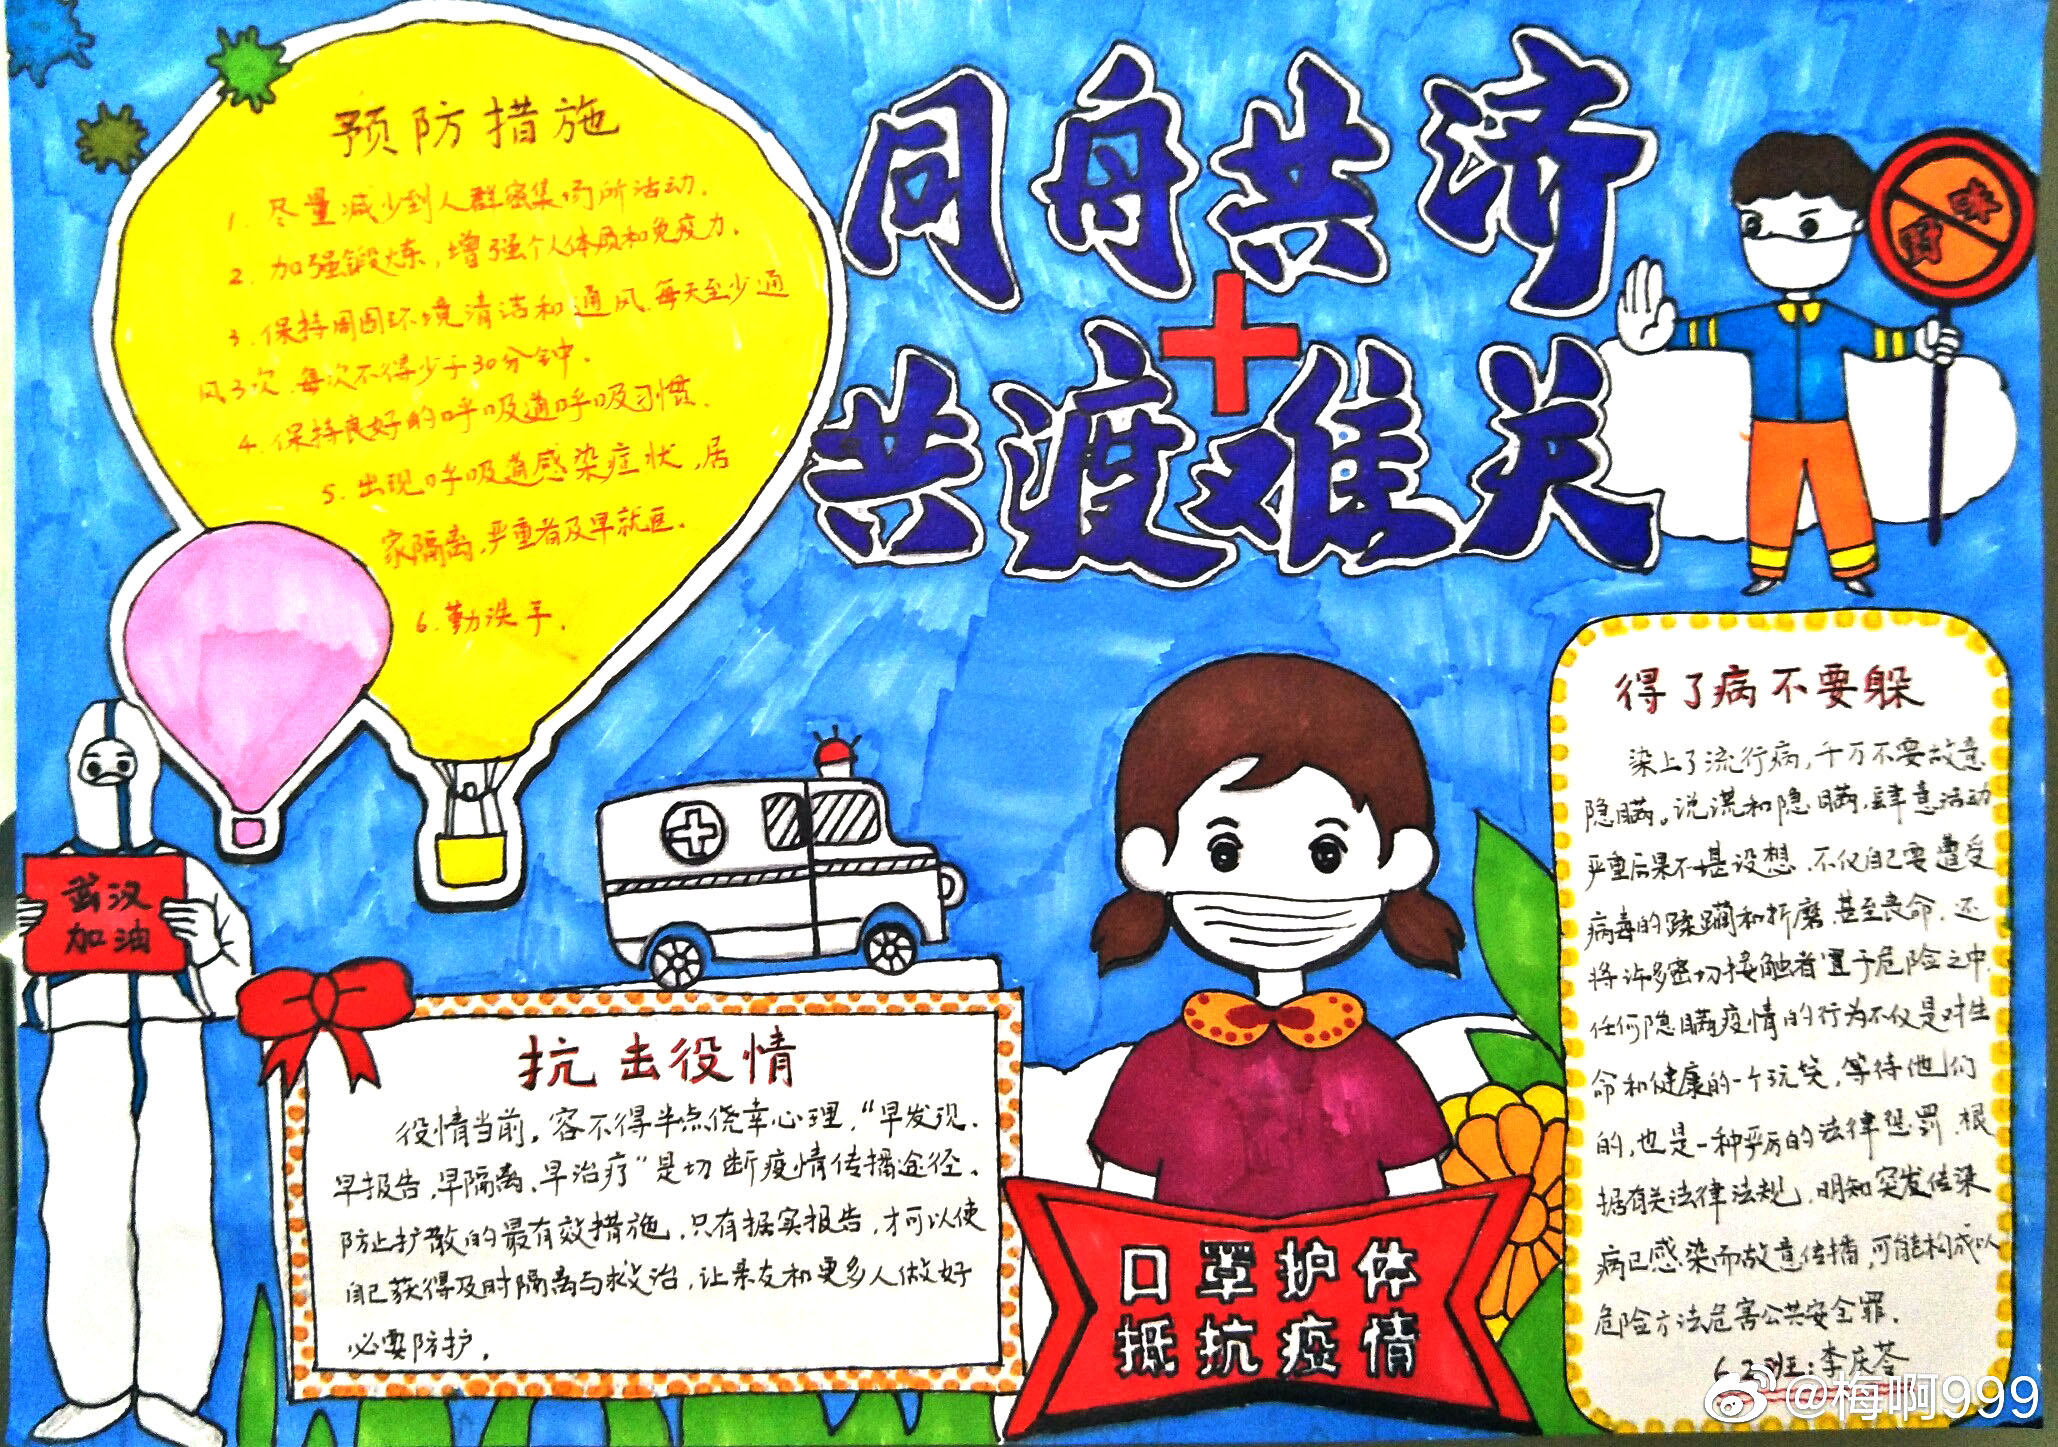 同舟共济
共渡难关
预防措施
1. 尽量减少到人群密集场所活动.
2. 加强锻炼,增强个人体质和免疫力.
3. 保持周围环境清洁和通风.每天至少通
风3次.每次不得少于30分钟.
4. 保持良好的呼吸道呼吸习惯.
5. 出现呼吸道感染症状,居
家隔离,严重者及早就医.
6. 勤洗手.
野味
武汉
加油
抗击役情
役情当前,容不得半点侥幸心理,“早发现.
早报告,早隔离、早治疗”是切断疫情传播途径、
防止扩散的最有效措施,只有据实报告,才可以使
自己获得及时隔离与救治,让亲友和更多人做好
必要防护.
口罩护体
抵抗疫情
得了病不要躲
染上了流行病,千万不要故意
隐瞒。说谎和隐瞒.肆意活动
严重后果不堪设想.不仅自己要遭受
病毒的蹂躏和折磨.甚至丧命.还
将许多密切接触者置于危险之中.
任何隐瞒疫情的行为不仅是对生
命和健康的一个玩笑,等待他们
的,也是一种严厉的法律惩罚.根
据有关法律法规,明知突发传染
病已感染而故意传播,可能构成以
危险方法危害公共安全罪.
6.2班:李庆苓
@梅啊999